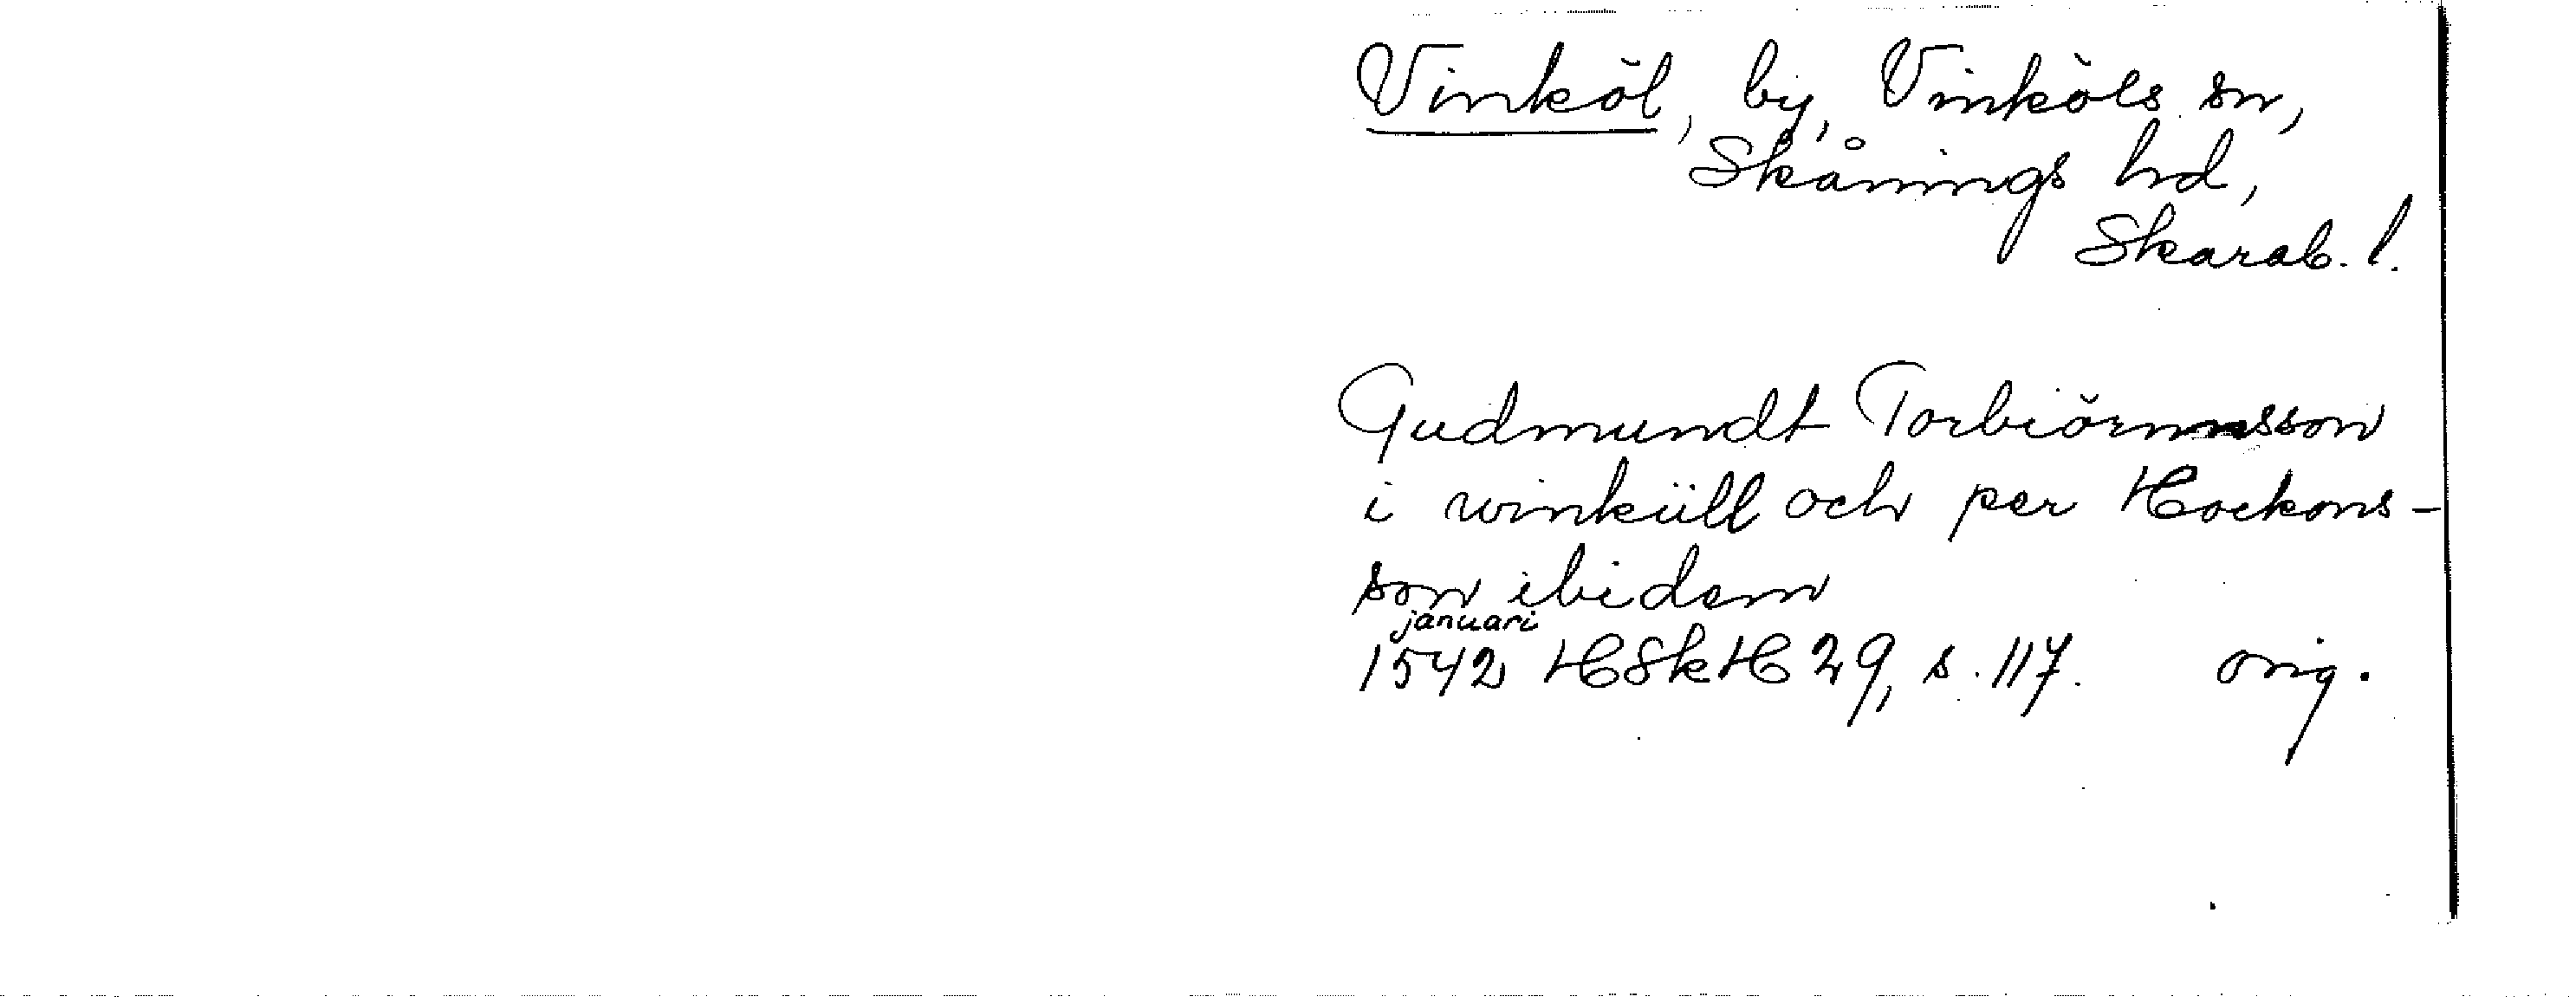 Vinköl, by, Vinköls sn,
Skånings hd,
Skarab. l.
Gudmundt Torbiörnsson
i winküll och per Hockons-
son ibidem
januari
1542 HSkH 29, s. 117. orig.